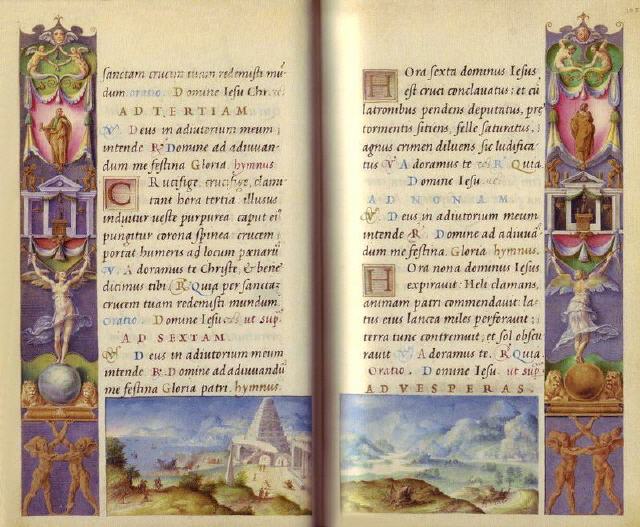 sanctam crucem tuam redemisti mū
dum. oratio. Domine Iesu Chr.
AD TERTIAM
V. Deus in adiutorium meum
intende R. Domine ad adiuuan
dum me festina Gloria hymnus.
CRucifige, crucifige, clami
tant hora tertia: illusus
induitur ueste purpurea: caput ei
pungitur corona spinea crucem
portat humeris ad locum pœnarū
V. Adoramus te Christe, & bene
dicimus tibi. R. Quia per sanctam
crucem tuam redemisti mundum.
Oratio. Domine Iesu ut sup.
AD SEXTAM.
V. Deus in adiutorium meum
intende R. Domine ad adiuuandū
me festina Gloria patri. hymnus.
HOra sexta dominus Iesus
est cruci conclauatus: et cū
latronibus pendens deputatus, præ
tormentis sitiens, felle saturatus,
agnus crimen deluens sic ludifica
tus V. Adoramus te R. Quia.
Domine Iesu.
AD NONAM.
V. Deus in adiutorium meum
intende R. Domine ad adiuuā
dum me festina. Gloria hymnus.
HOra nona dominus Iesus
expirauit: Heli clamans,
animam patri commendauit: la
tus eius lancea miles perforauit:
terra tunc contremuit, et sol obscu
rauit V. Adoramus te. R. Quia.
Oratio. Domine Iesu. ut sup.
AD VESPERAS.